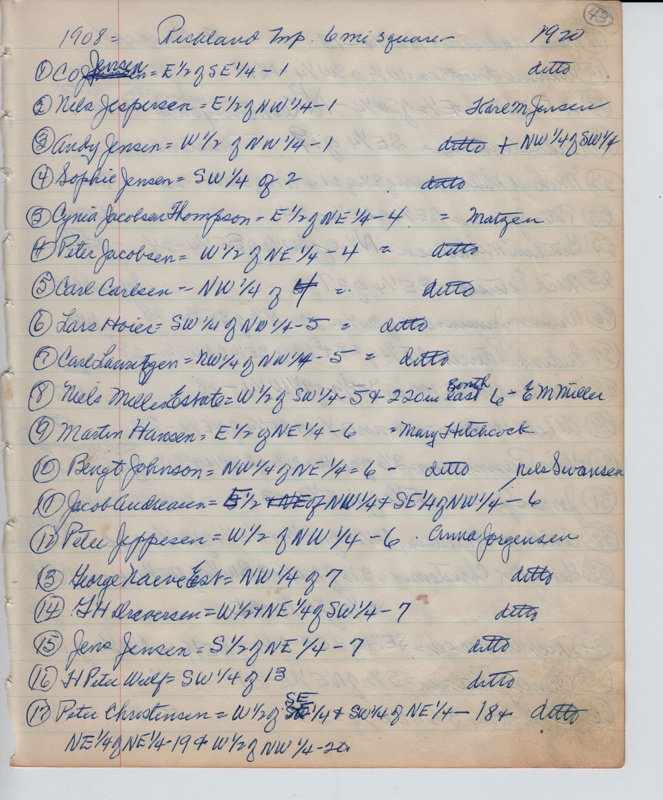 43
1908 = Richland Tnp. 6 mi square - 1920
① C O Jensen = E 1/2 of SE 1/4 - 1 ditto
② Nils Jespersen = E 1/2 of NW 1/4 - 1 Karem Jensen
③ Andy Jensen = W 1/2 of NW 1/4 - 1 ditto + NW 1/4 of SW 1/4
④ Sophie Jensen = SW 1/4 of 2 ditto
③ Cynia Jacobsen Thompson = E 1/2 of NE 1/4 - 4 = Matzen
④ Peter Jacobsen = W 1/2 of NE 1/4 - 4 = ditto
⑤ Carl Carlsen - NW 1/4 of 4 = ditto
⑥ Lars Hoier = SW 1/4 of NW 1/4 - 5 = ditto
⑦ Carl Lauritzen = NW 1/4 of NW 1/4 - 5 = ditto
⑧ Niels Miller Estate = W 1/2 of SW 1/4 - 5 & 220 in South East 6 - E M Miller
⑨ Martin Hansen = E 1/2 of NE 1/4 - 6 = Mary Hitchcock
⑩ Bengt Johnson = NW 1/4 of NE 1/4 = 6 - ditto Nils Swansen
⑪ Jacob Andreasen = 1/2 of NW 1/4 + SE 1/4 of NW 1/4 - 6
⑫ Peter Jeppesen = W 1/2 of NW 1/4 - 6 . Anna Jorgensen
⑬ George Naeve Est = NW 1/4 of 7 ditto
⑭ H Dreversen = W 1/2 + NE 1/4 of SW 1/4 - 7 ditto
⑮ Jens Jensen = S 1/2 of NE 1/4 - 7 ditto
⑯ H Peter Wilf = SW 1/4 of 13 ditto
Peter Christensen = W 1/2 of SE 1/4 & SW 1/4 of NE 1/4 - 18 & ditto
NE 1/4 of NE 1/4 - 19 & W 1/2 of NW 1/4 - 20